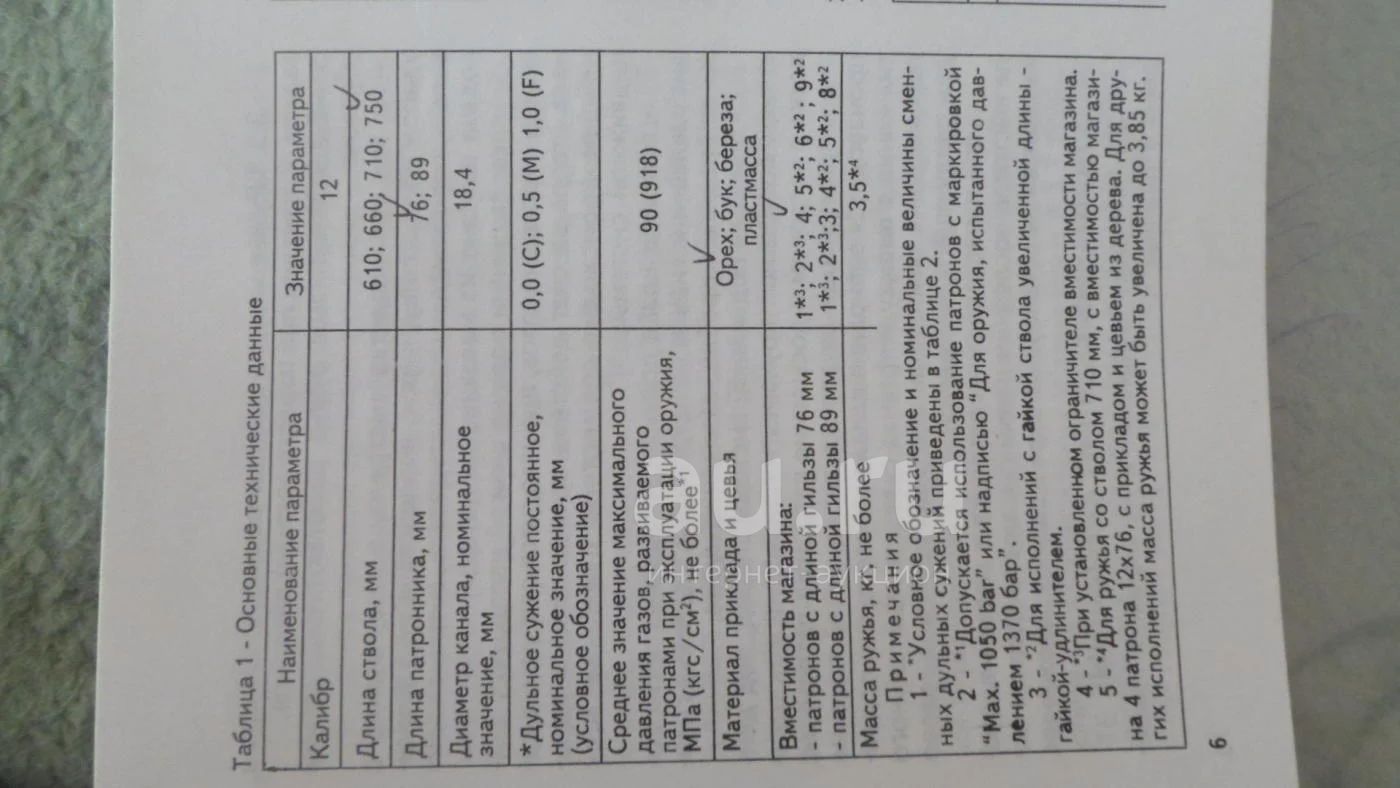 Таблица 1 - Основные технические данные
Наименование параметра Значение параметра
Калибр 12
Длина ствола, мм 610; 660; 710; 750
Длина патронника, мм 76; 89
Диаметр канала, номинальное
значение, мм 18,4
*Дульное сужение постоянное,
номинальное значение, мм
(условное обозначение) 0,0 (С); 0,5 (М) 1,0 (F)
Среднее значение максимального
давления газов, развиваемого
патронами при эксплуатации оружия,
МПа (кгс/см²), не более*1 90 (918)
Материал приклада и цевья Орех; бук; береза;
пластмасса
Вместимость магазина:
- патронов с длиной гильзы 76 мм 1*3; 2*3; 4; 5*2; 6*2; 9*2
- патронов с длиной гильзы 89 мм 1*3; 2*3;3; 4*2; 5*2; 8*2
Масса ружья, кг, не более 3,5*4
Примечания
1 - *Условное обозначение и номинальные величины смен-
ных дульных сужений приведены в таблице 2.
2 - *1Допускается использование патронов с маркировкой
“Max. 1050 bar” или надписью “Для оружия, испытанного дав-
лением 1370 бар”.
3 - *2Для исполнений с гайкой ствола увеличенной длины -
гайкой-удлинителем.
4 - *3При установленном ограничителе вместимости магазина.
5 - *4Для ружья со стволом 710 мм, с вместимостью магази-
на 4 патрона 12х76, с прикладом и цевьем из дерева. Для дру-
гих исполнений масса ружья может быть увеличена до 3,85 кг.
6
au.ru
интернет-аукцион